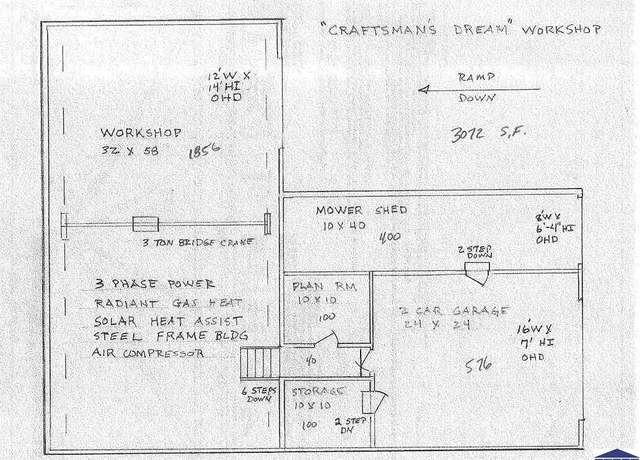 "CRAFTSMAN'S DREAM" WORKSHOP
RAMP
DOWN
3072 S.F.
12'W X
14' HI
OHD
WORKSHOP
32 X 58 1856
3 TON BRIDGE CRANE
3 PHASE POWER
RADIANT GAS HEAT
SOLAR HEAT ASSIST
STEEL FRAME BLDG
AIR COMPRESSOR
6 STEPS
DOWN
MOWER SHED
10 X 40
400
8'W X
6'-4" HI
OHD
2 STEP
DOWN
PLAN RM
10 X 10
100
2 CAR GARAGE
24 X 24
576
16'W X
7' HI
OHD
40
STORAGE
10 X 10
100
2 STEP
DN